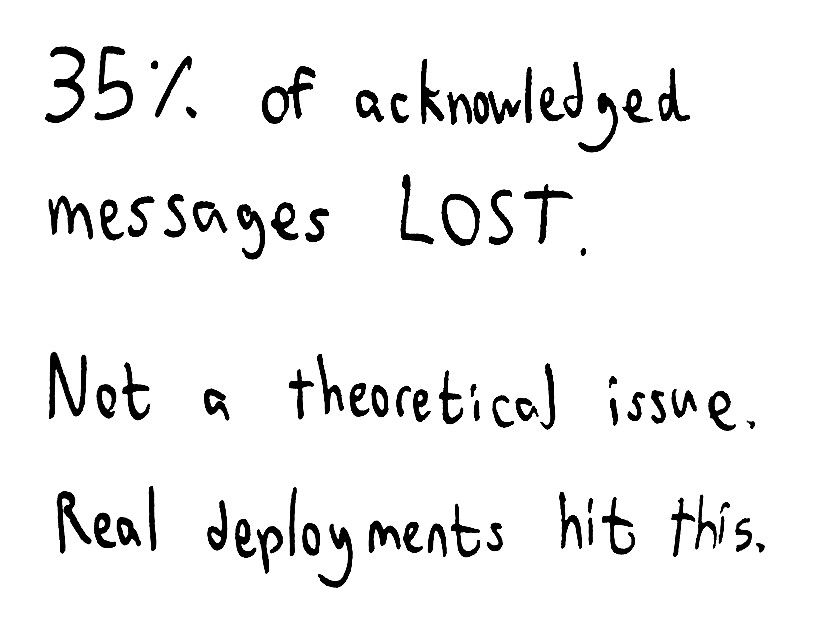 35% of acknowledged
messages LOST.
Not a theoretical issue.
Real deployments hit this.